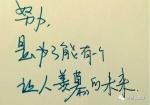 努力,
是为了能有个
让人羡慕的未来.